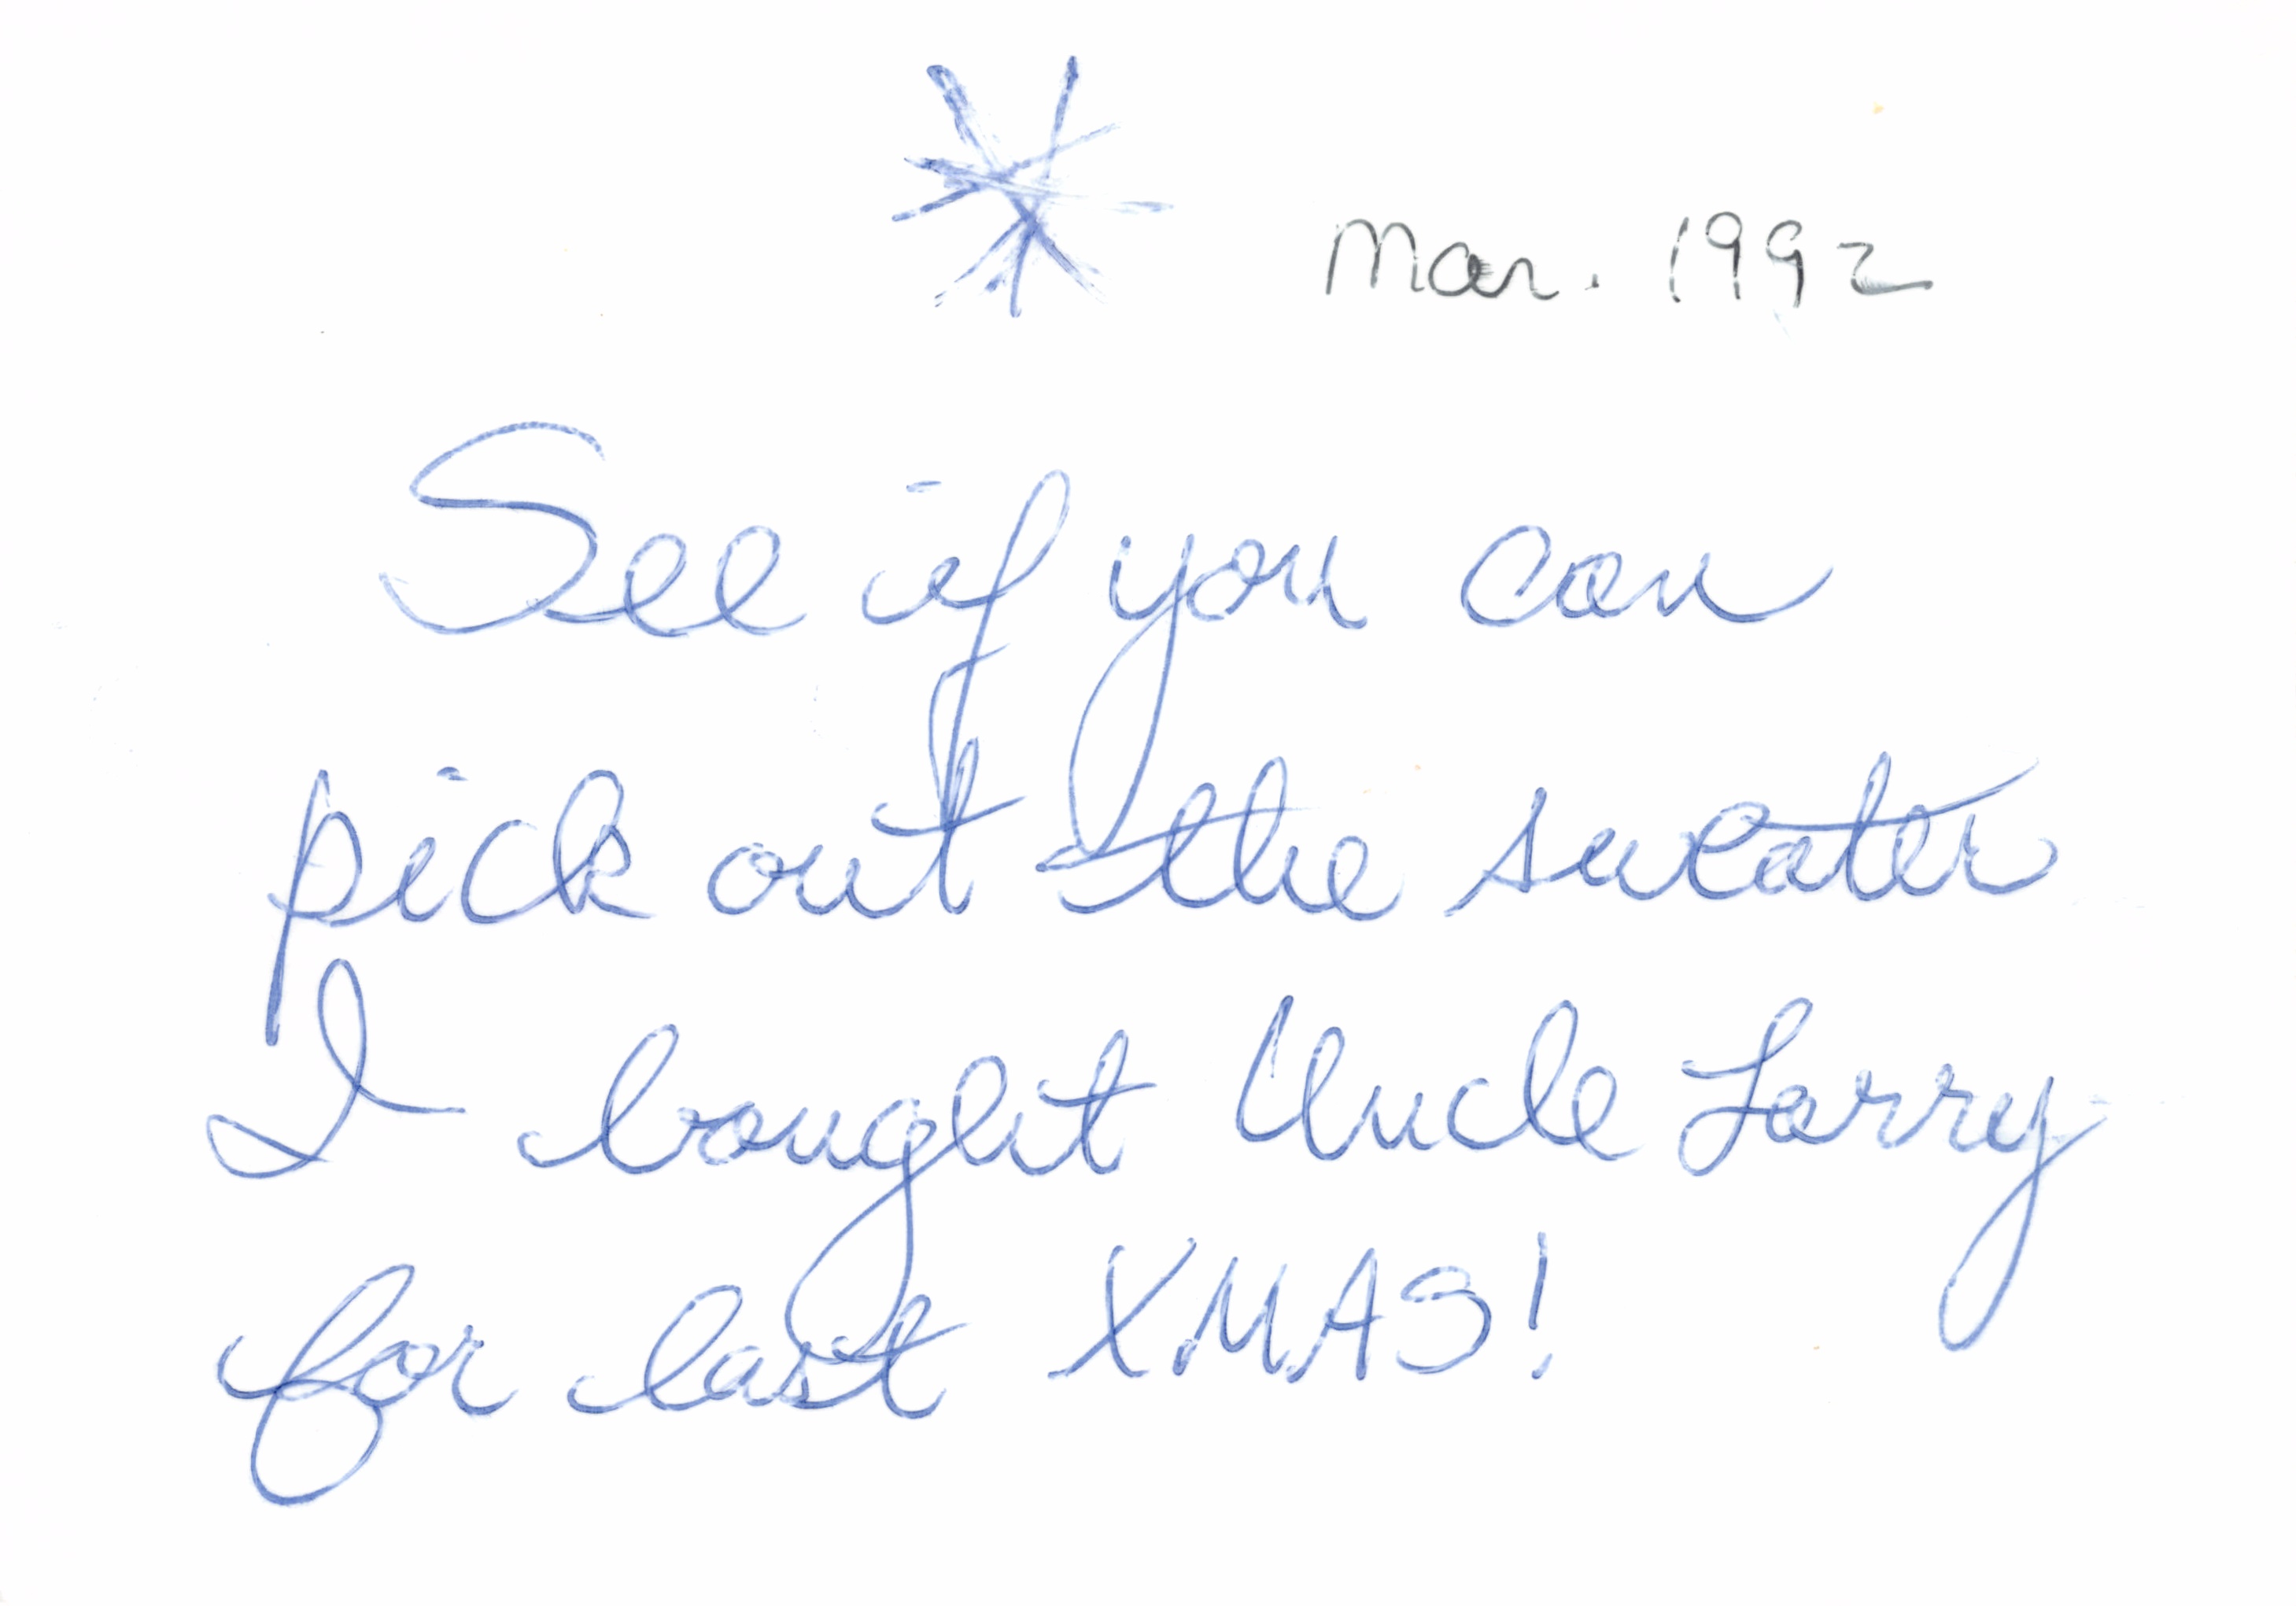 * Mar. 1992
See if you can
pick out the sweater
I bought Uncle Larry
for last XMAS!